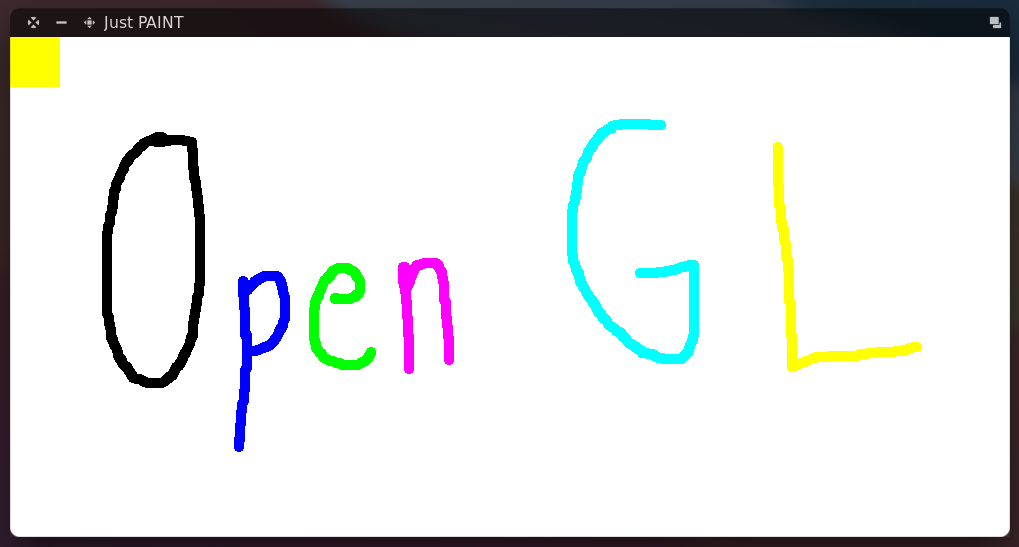 Just PAINT
Open GL